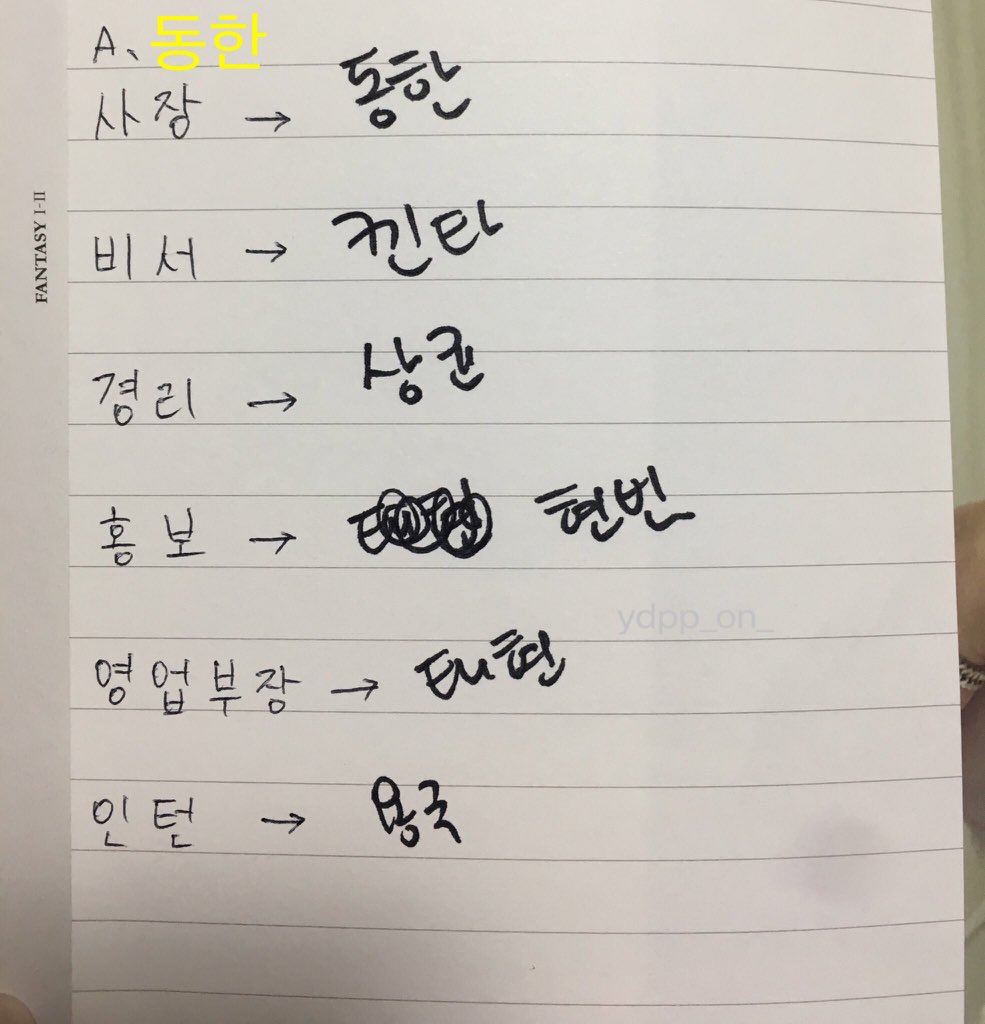 A、동한
사장 → 동한
비서 → 켄타
경리 → 상균
홍보 → 현빈
영업부장 → 태현
인턴 → 용국
FANTASY I-II
ydpp_on_